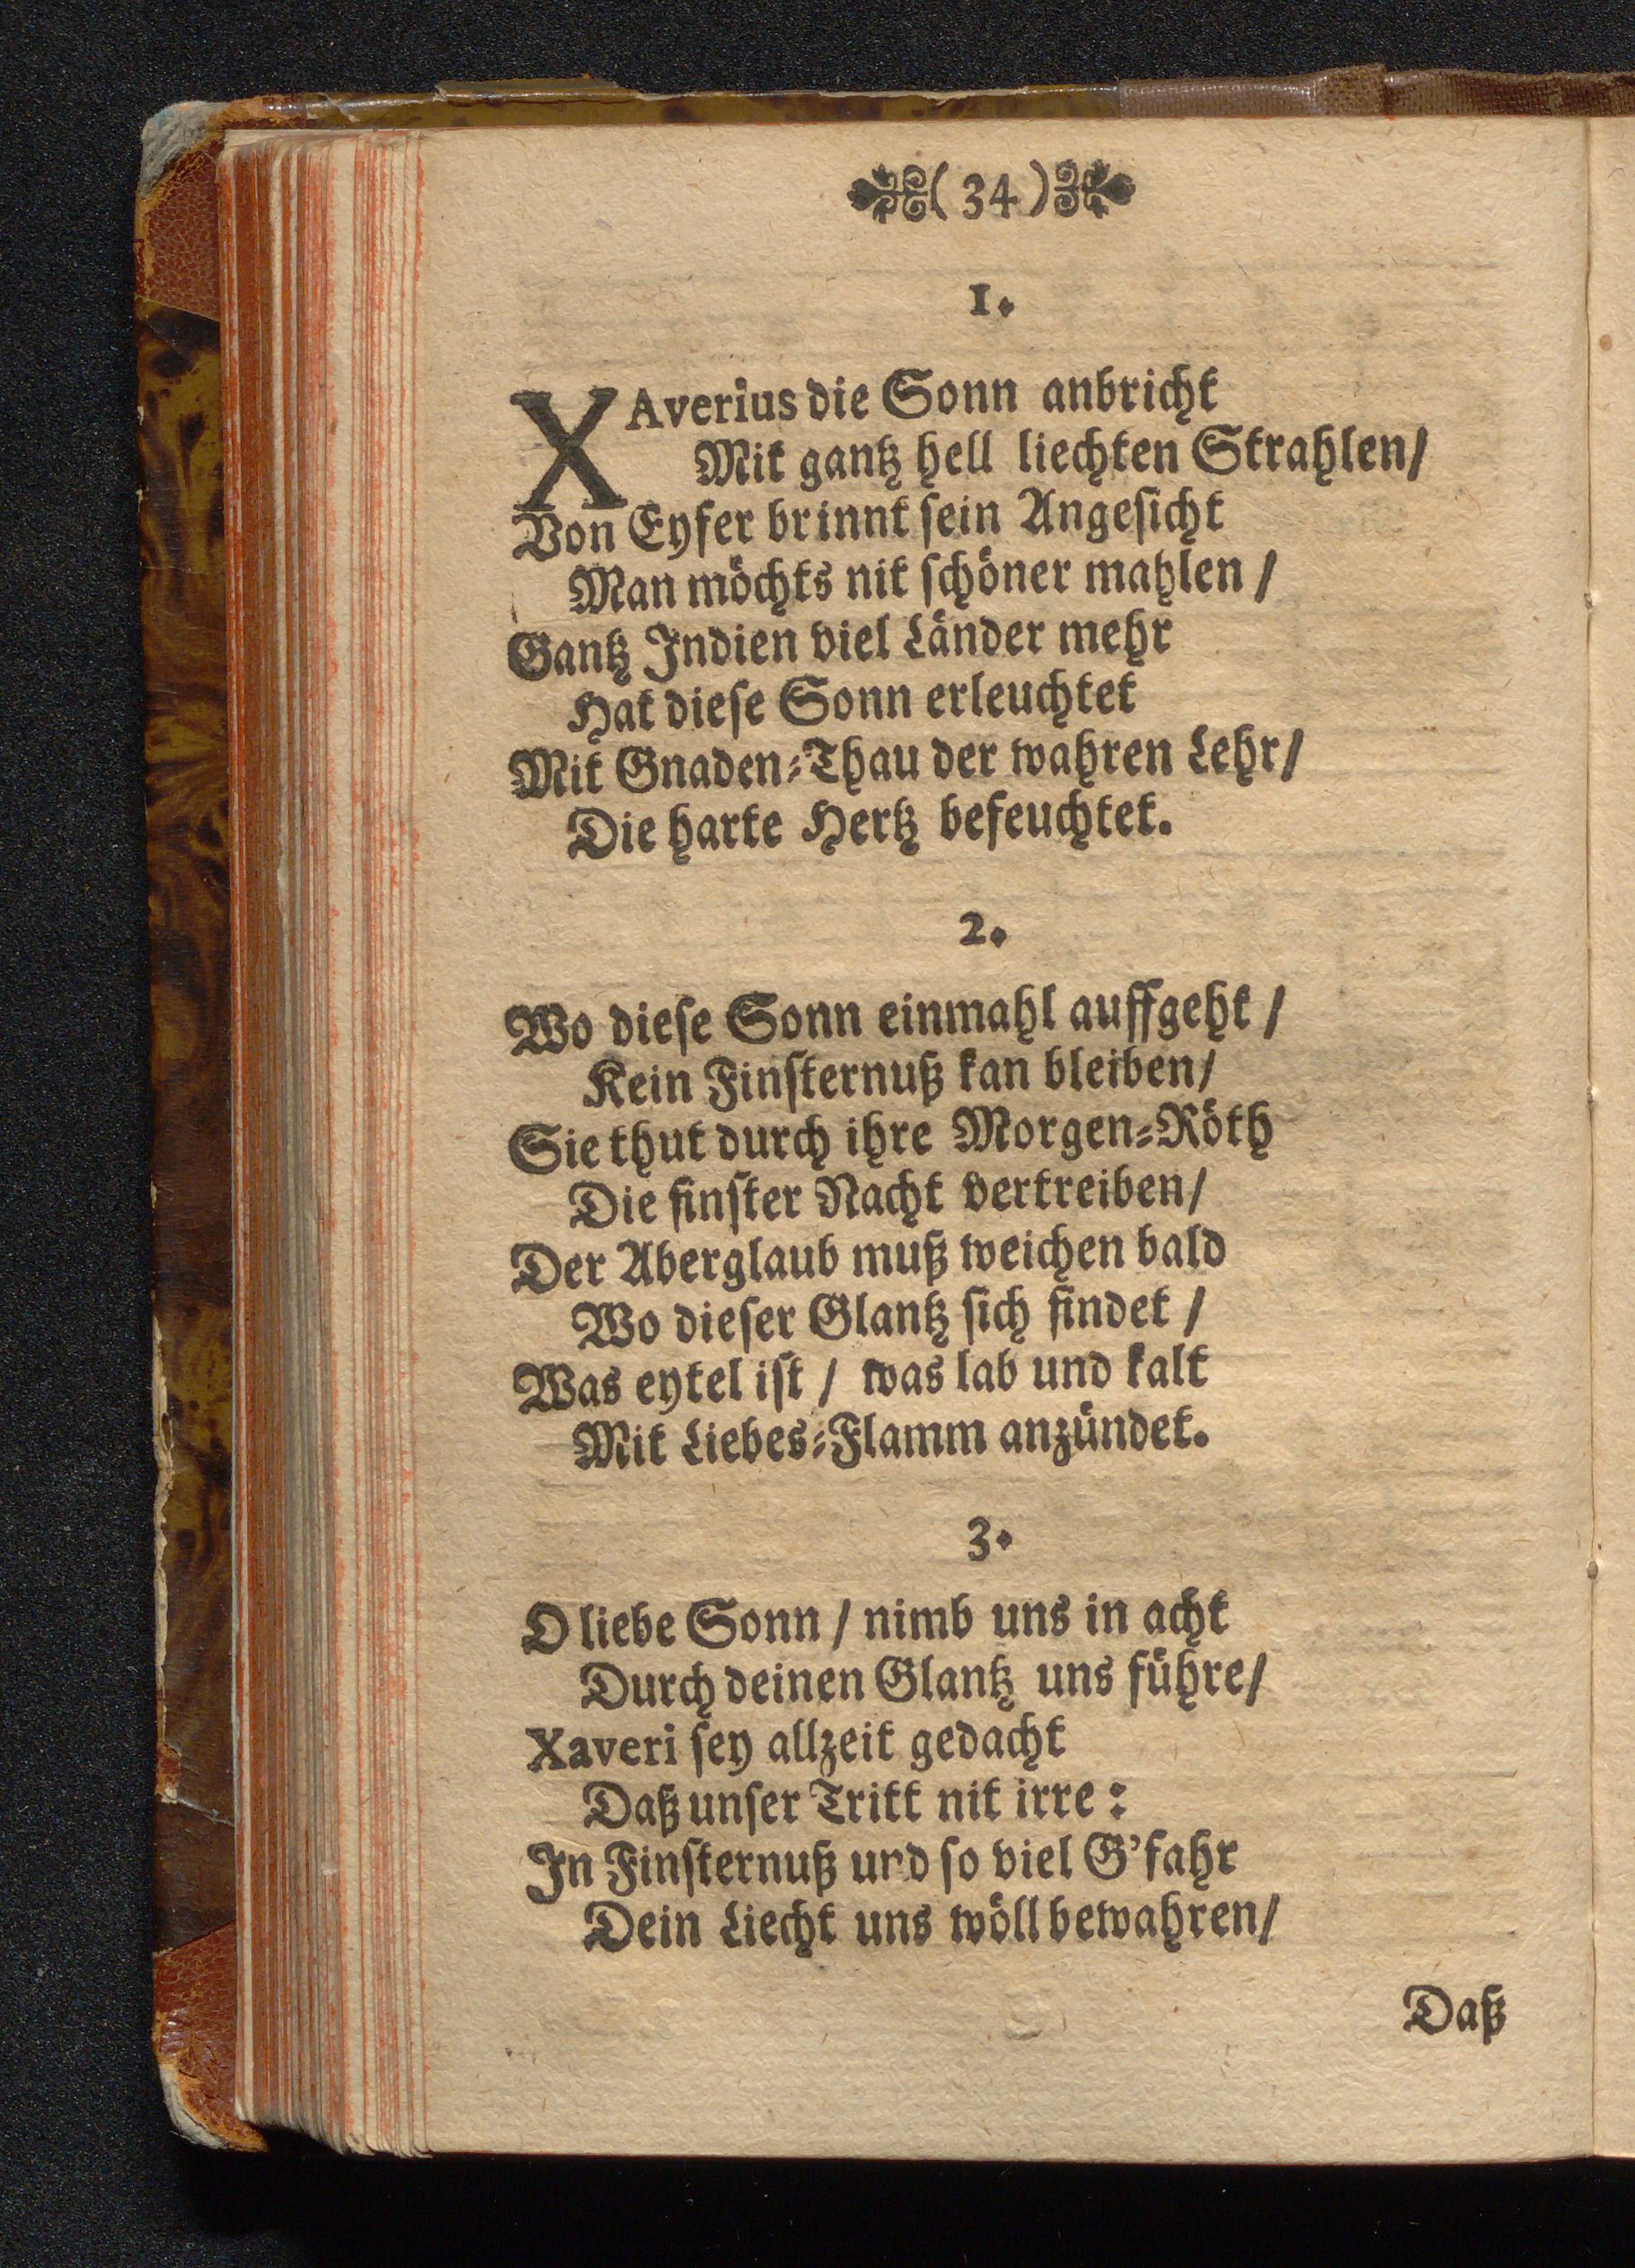 (34)
1.
XAverius die Sonn anbricht
Mit gantz hell liechten Strahlen/
Von Eyfer brinnt sein Angesicht
Man möchts nit schöner mahlen /
Gantz Indien viel Länder mehr
Hat diese Sonn erleuchtet
Mit Gnaden-Thau der wahren Lehr/
Die harte Hertz befeuchtet.
2.
Wo diese Sonn einmahl auffgeht /
Kein Finsternuß kan bleiben/
Sie thut durch ihre Morgen-Röth
Die finster Nacht vertreiben/
Der Aberglaub muß weichen bald
Wo dieser Glantz sich findet /
Was eytel ist / was lab und kalt
Mit Liebes-Flamm anzündet.
3.
O liebe Sonn / nimb uns in acht
Durch deinen Glantz uns führe/
Xaveri sey allzeit gedacht
Daß unser Tritt nit irre:
In Finsternuß und so viel G'fahr
Dein Liecht uns wöll bewahren/
Daß